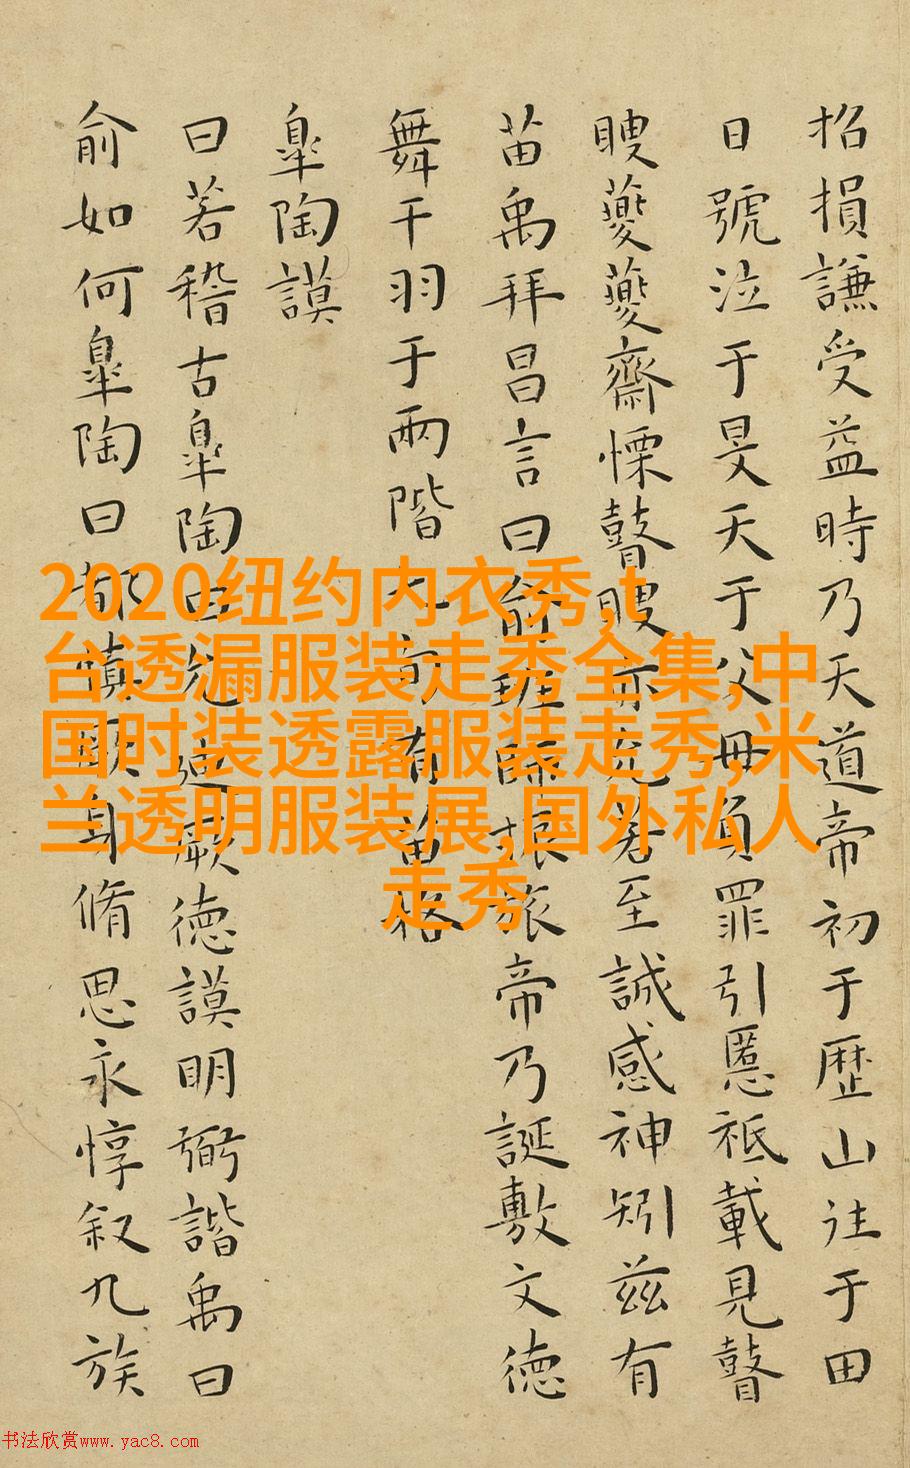 招損謙受益時乃天道帝初于歷山往于田
日號泣于旻天于父母負罪引慝祗載見瞽
瞍夔夔齋慄瞽瞍亦允若至諴感神矧茲有
苗禹拜昌言曰俞班師振旅帝乃誕敷文德
舞干羽于兩階七旬有苗格
皐陶謨
曰若稽古皐陶曰允迪厥德謨明弼諧禹曰
俞如何皐陶曰都慎厥身脩思永惇叙九族
2020纽约内衣秀,t
台透漏服装走秀全集,中
国时装透露服装走秀,米
兰透明服装展,国外私人
走秀
书法欣赏www.yac8.com